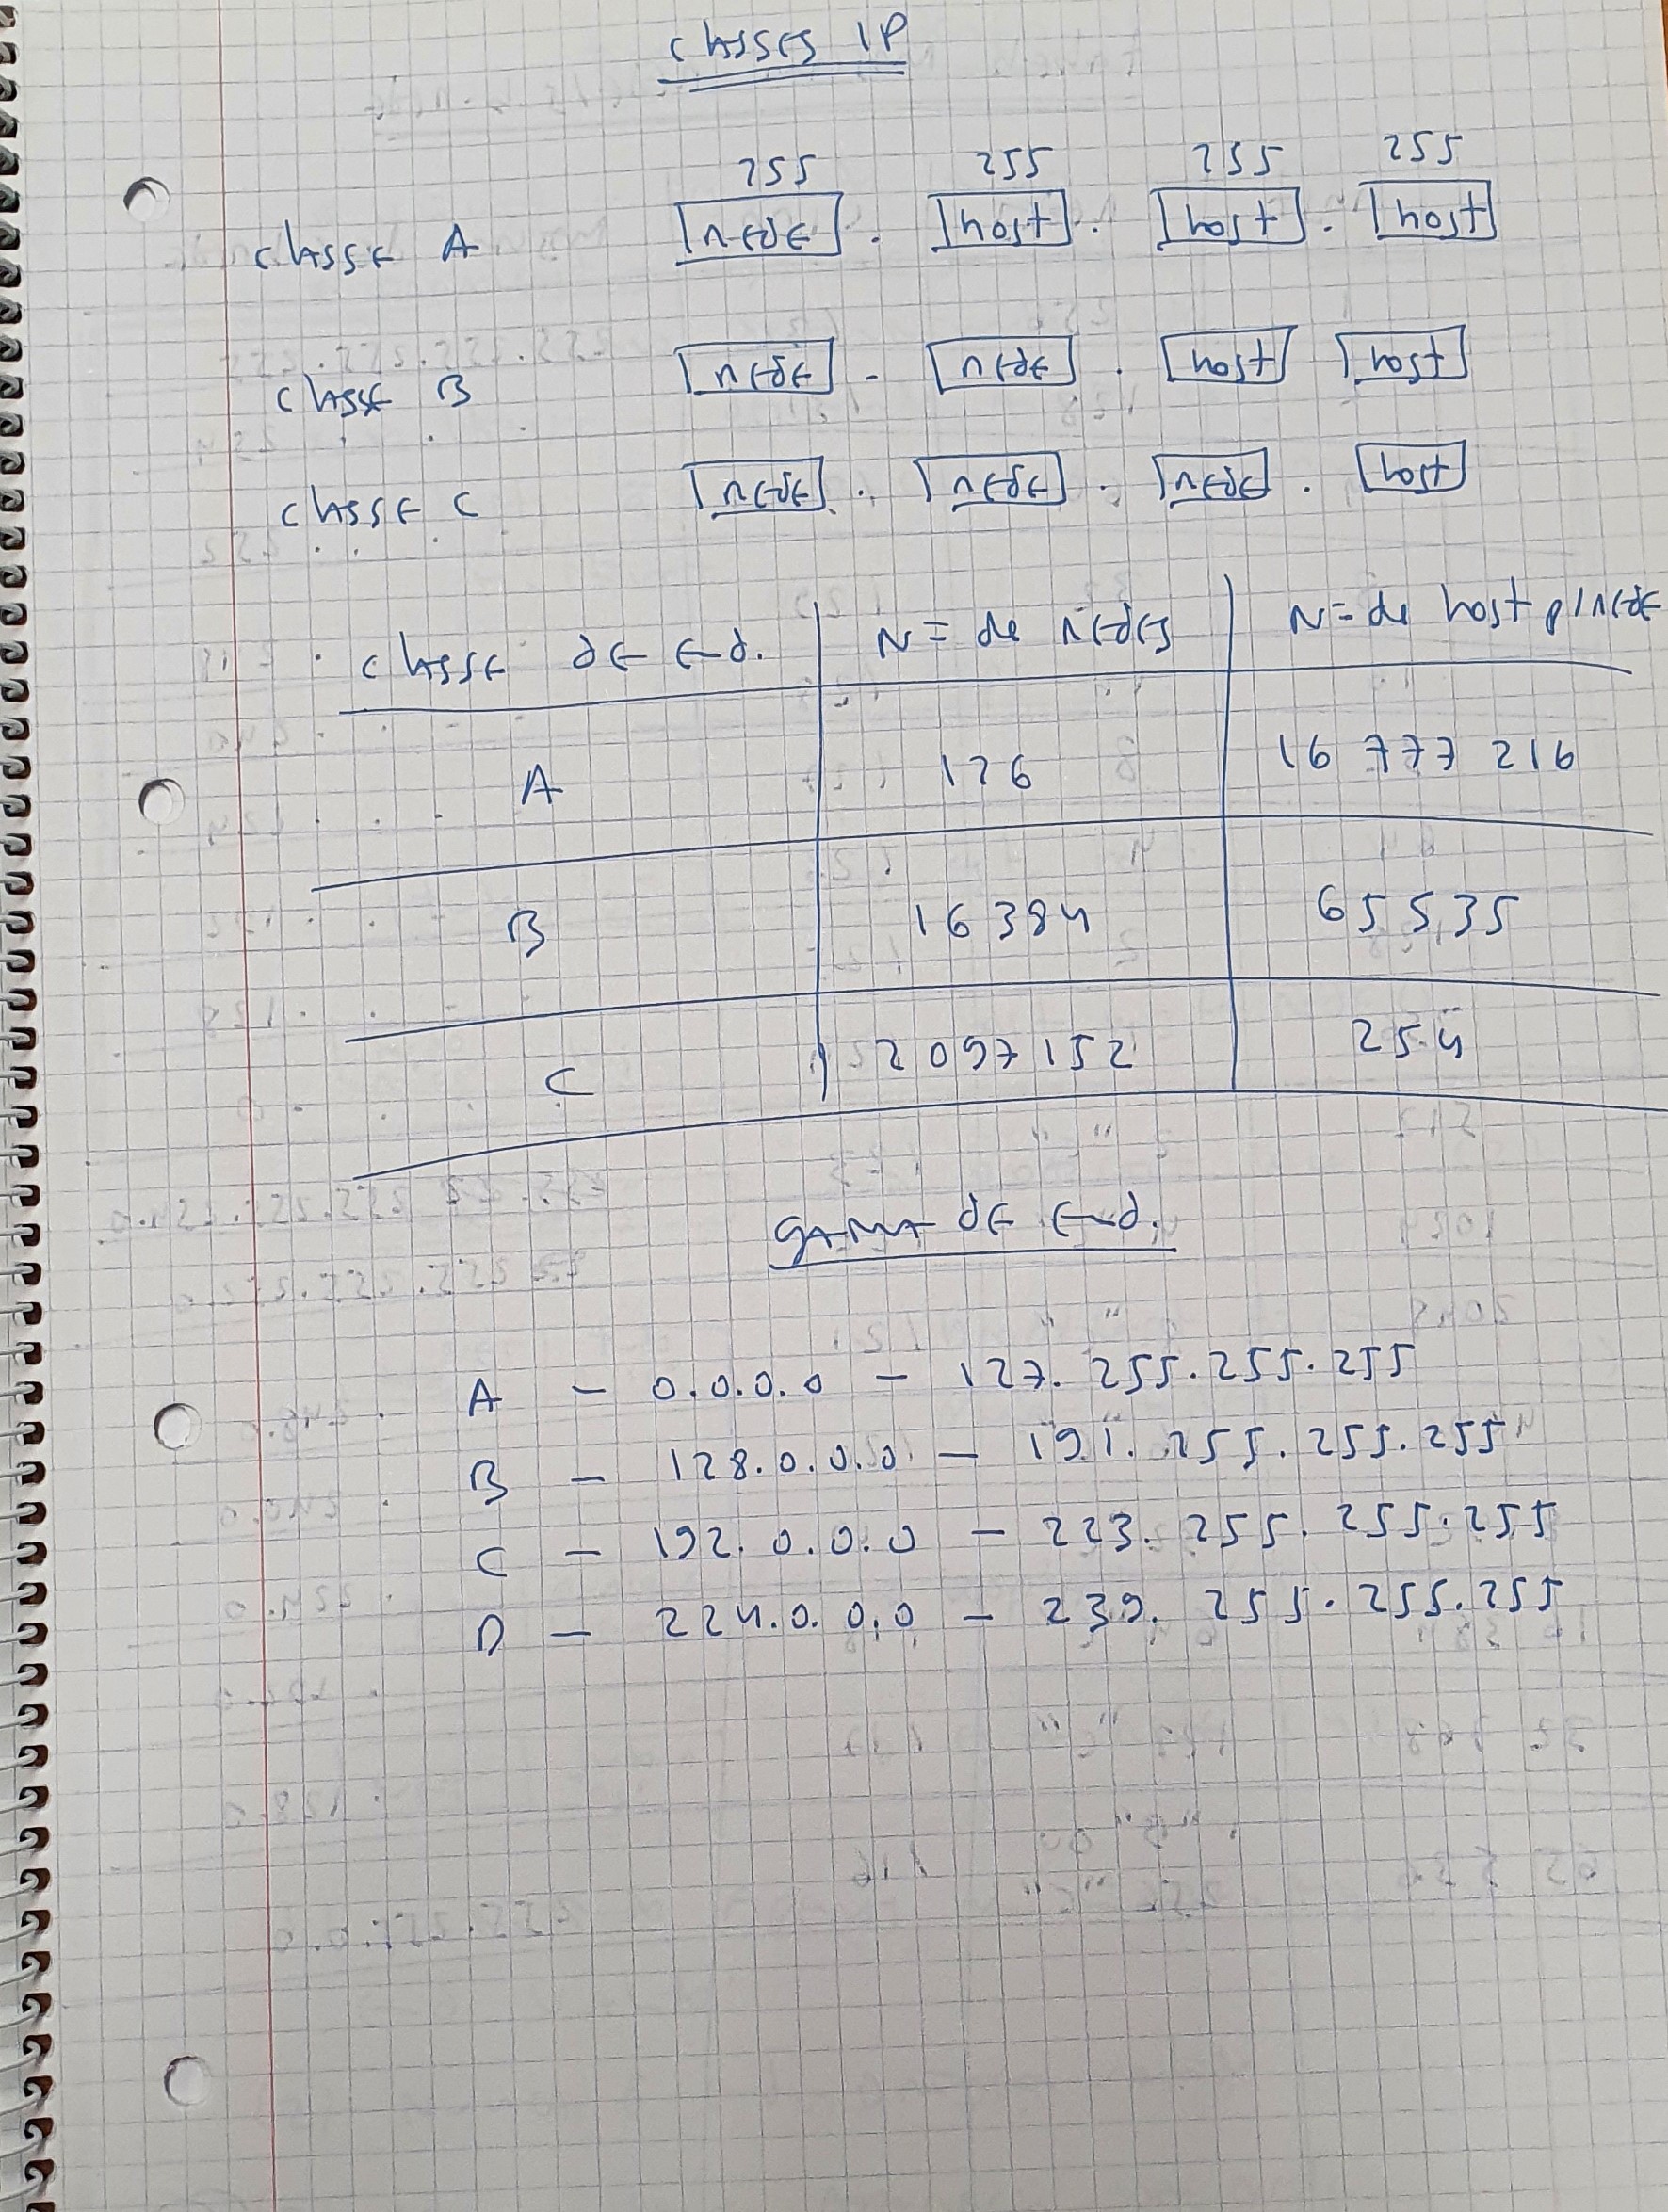 classes IP
255 255 255 255
classe A rede . host . host . host
classe B rede . rede . host host
classe C rede . rede . rede . host
classe de end. N= de redes N= de host p/rede
A 126 16 777 216
B 16 384 65 535
C 2 097 152 254
gama de end.
A - 0.0.0.0 - 127.255.255.255
B - 128.0.0.0 - 191.255.255.255
C - 192.0.0.0 - 223.255.255.255
D - 224.0.0.0 - 239.255.255.255